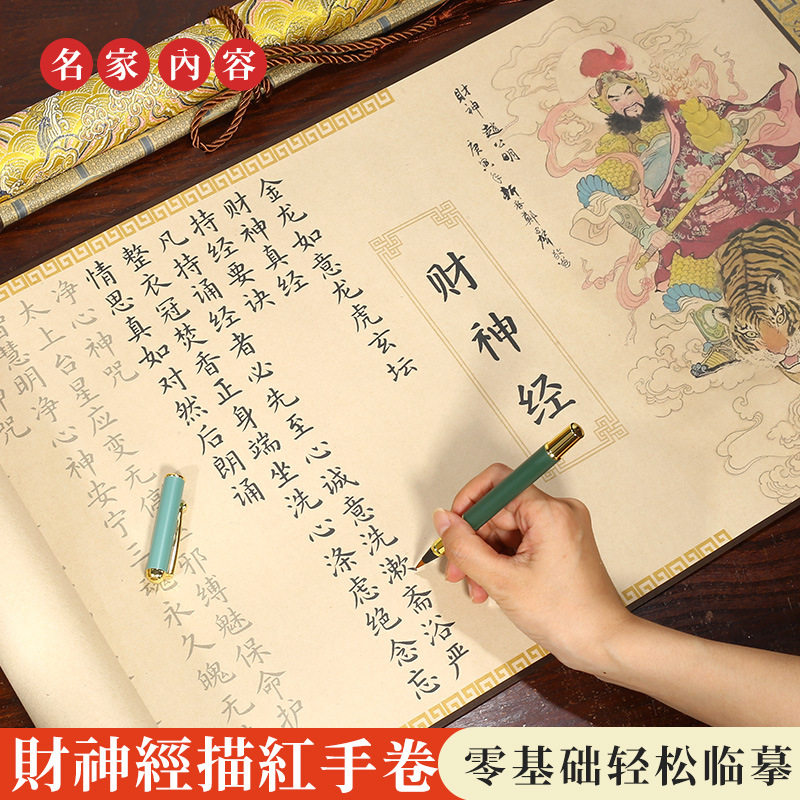 名家內容
財神趙公明
庚寅年
财神经
金龙如意龙虎玄坛
财神真经
持经要诀
凡持诵经者必先至心诚意洗漱斋浴严
整衣冠焚香正身端坐洗心涤虑绝念忘
情思真如对然后朗诵
净心神咒
太上台星应变无停邪缚魅保命护
智慧明净心神安宁三魂永久魄无
神咒
財神經描紅手卷
零基础轻松临摹